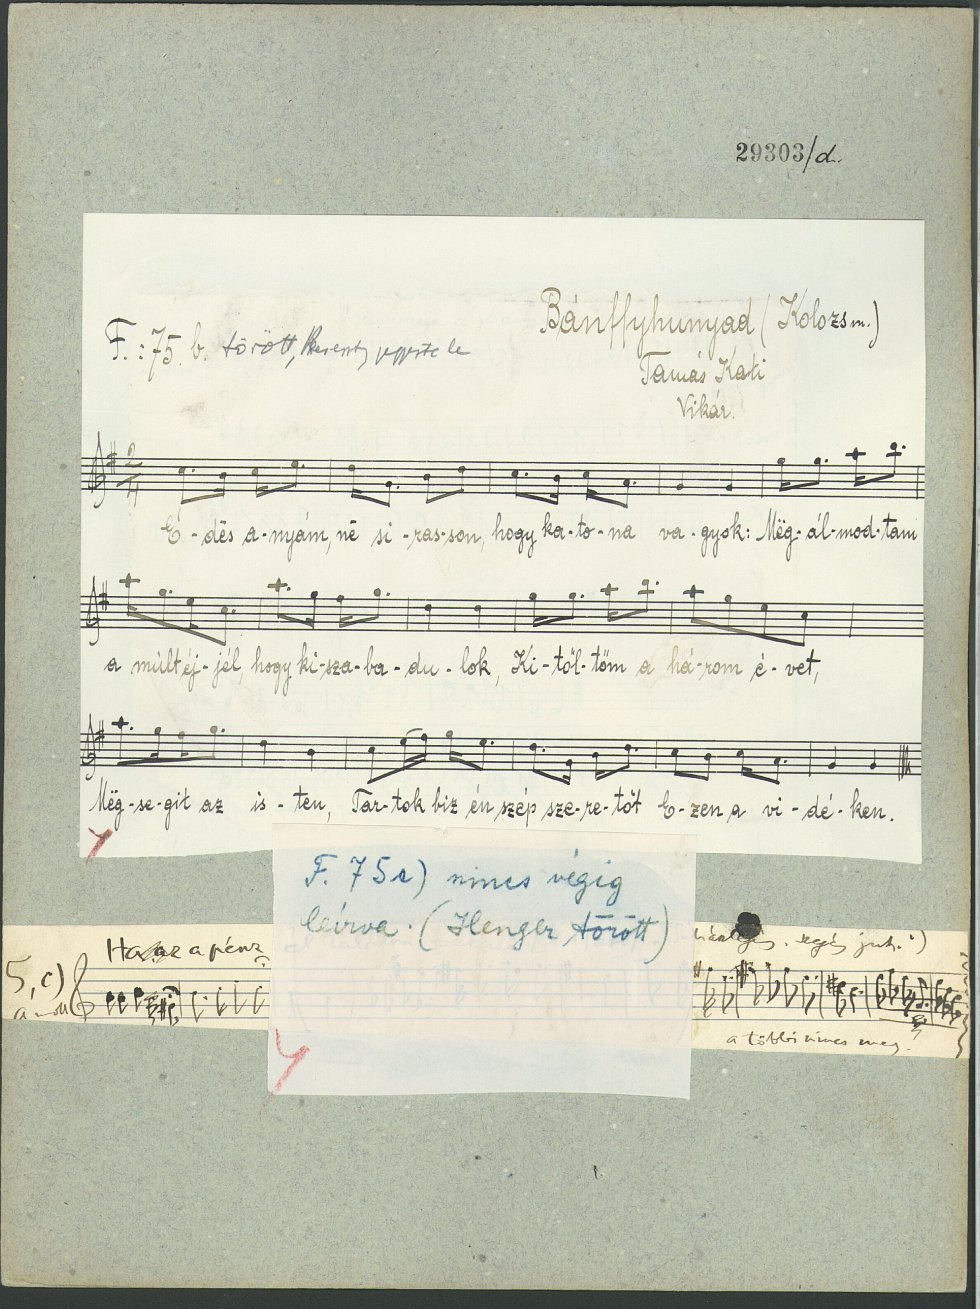 29303/d.
Bánffyhunyad (Kolozsm.)
F.: 75. b. törött,
Tamás Kati
Vikár.
2/4
É-dës a-nyám, në si-ras-son, hogy ka-to-na va-gyok: Mëg-ál-mod-tam
a múlt éj-jél, hogy ki-sza-ba-du-lok, Ki-töl-töm a há-rom é-vet,
Mëg-se-git az is-ten, Tar-tok biz én szép sze-re-tőt E-zen a vi-dé-ken.
F. 75c) nincs végig
leírva. (Henger törött)
Ha az a pénz
5, c)
a moll
a többi nincs meg.